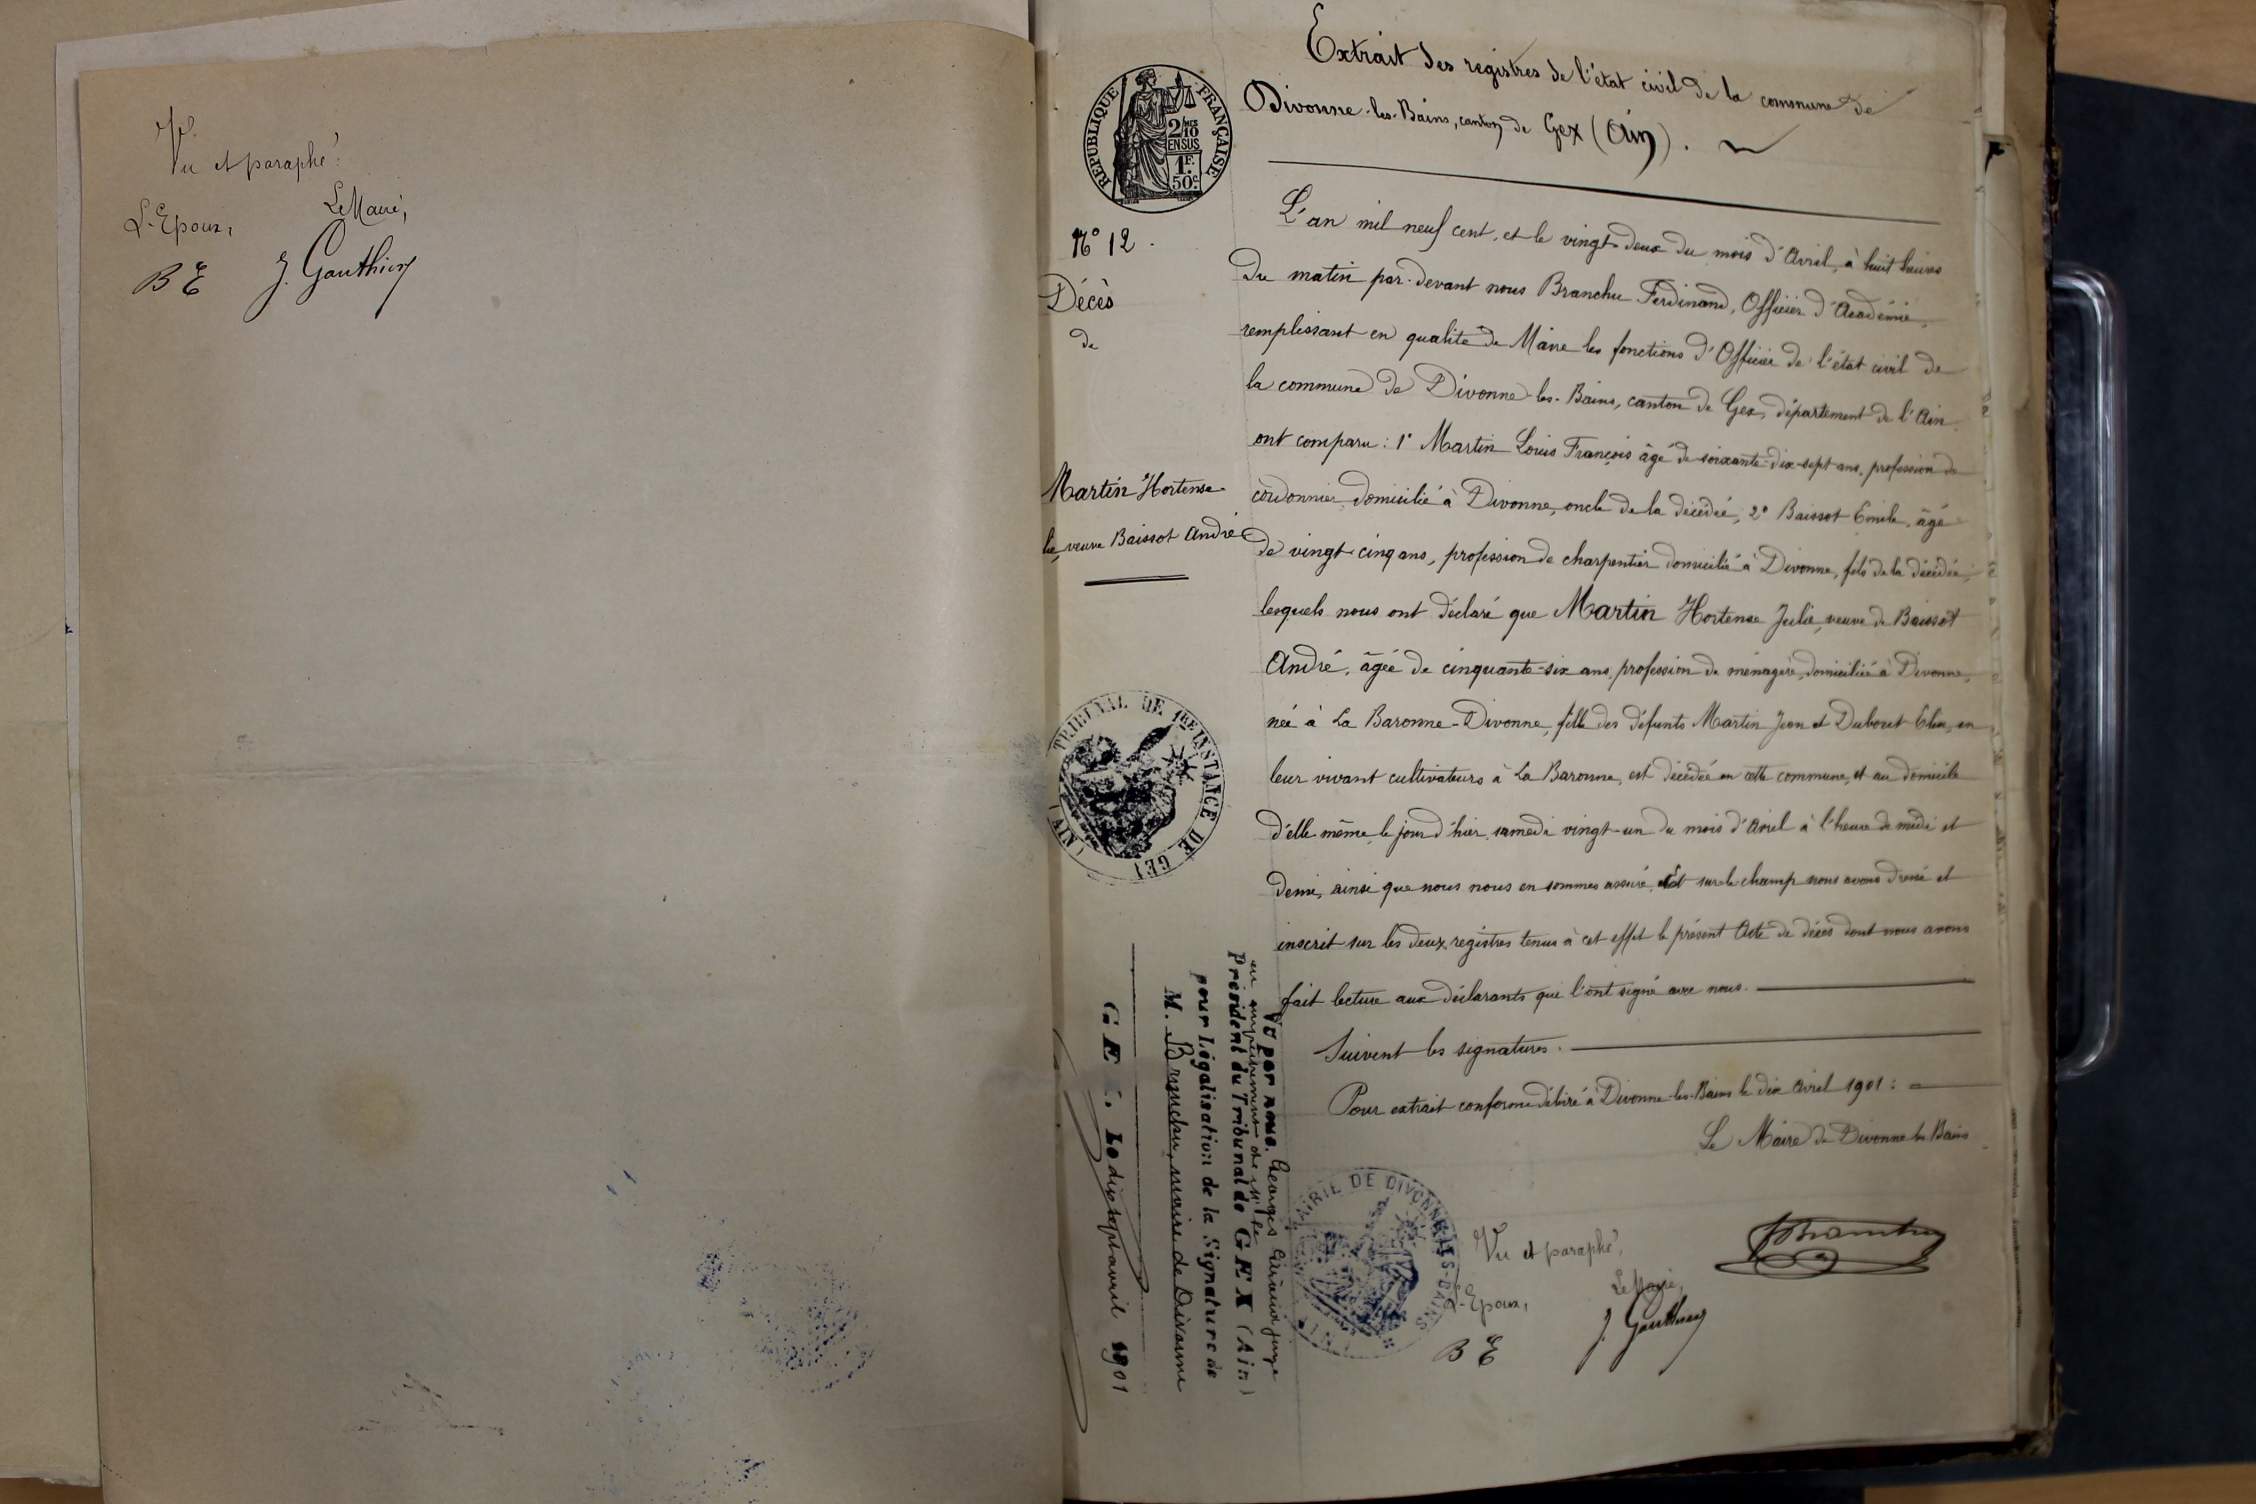 Vu et paraphé:
L'Epoux, Le Maire,
B E J. Gauthier
Extrait des registres de l'état civil de la commune de
Divonne-les-Bains, canton de Gex (Ain).
REPUBLIQUE FRANÇAISE
2/10
EN SUS
1F.
50c.
N° 12.
Décès
de
Martin Hortense
Julie, veuve Baissot André
L'an mil neuf cent, et le vingt-deux du mois d'Avril, à huit heures
du matin par-devant nous Branchu Ferdinand, Officier d'Académie,
remplissant en qualité de Maire les fonctions d'Officier de l'état civil de
la commune de Divonne-les-Bains, canton de Gex, département de l'Ain
ont comparu: 1° Martin Louis François âgé de soixante-dix-sept ans, profession de
cordonnier domicilié à Divonne, oncle de la décédée, 2° Baissot Emile, âgé
de vingt-cinq ans, profession de charpentier domicilié à Divonne, fils de la décédée,
lesquels nous ont déclaré que Martin Hortense Julie, veuve de Baissot
André, âgée de cinquante-six ans, profession de ménagère, domiciliée à Divonne,
née à La Baronne-Divonne, fille des défunts Martin Jean et Dubout en
leur vivant cultivateurs à La Baronne, est décédée en cette commune, et au domicile
d'elle même, le jour d'hier, samedi vingt-un du mois d'Avril à l'heure de midi et
demi, ainsi que nous nous en sommes assuré, Et sur le champ nous avons dressé et
inscrit sur les deux registres tenus à cet effet le présent Acte de décès dont nous avons
fait lecture aux déclarants qui l'ont signé avec nous.
Suivent les signatures.
Pour extrait conforme délivré à Divonne-les-Bains le dix Avril 1901:
Le Maire de Divonne les Bains
TRIBUNAL DE 1RE INSTANCE DE GEX
(AIN)
Vu par nous, Georges juge
en empêchement de Mr le
Président du Tribunal de GEX (Ain)
pour Légalisation de la Signature de
M. Branchu, maire de Divonne
GEX, le dix sept avril 1901
MAIRIE DE DIVONNE-LES-BAINS
AIN
Vu et paraphé,
L'Epoux, Le Maire,
B E J. Gauthier
Branchu